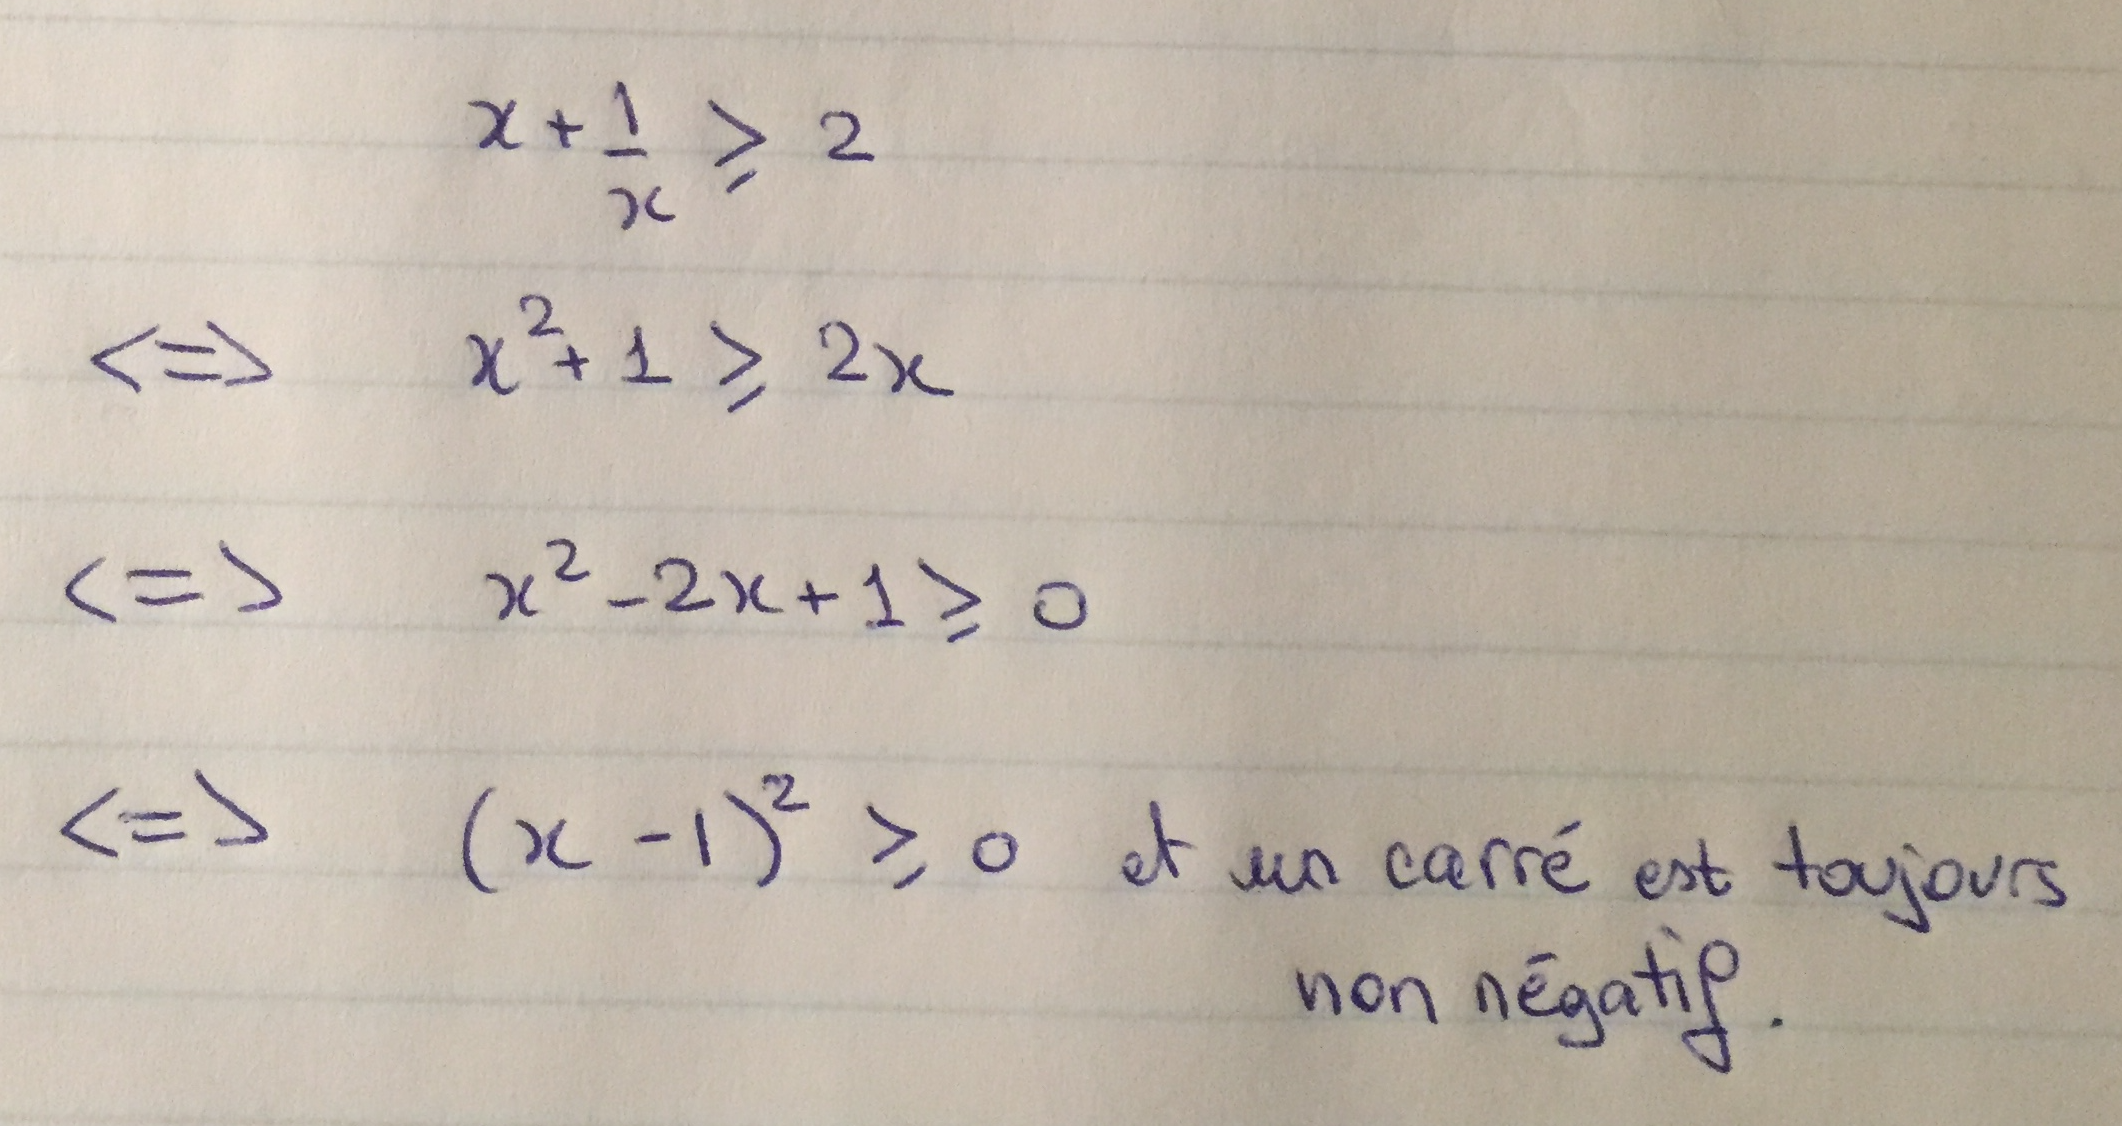 x + 1/x ≥ 2
<=> x² + 1 ≥ 2x
<=> x² - 2x + 1 ≥ 0
<=> (x - 1)² ≥ 0 et un carré est toujours
non négatif.